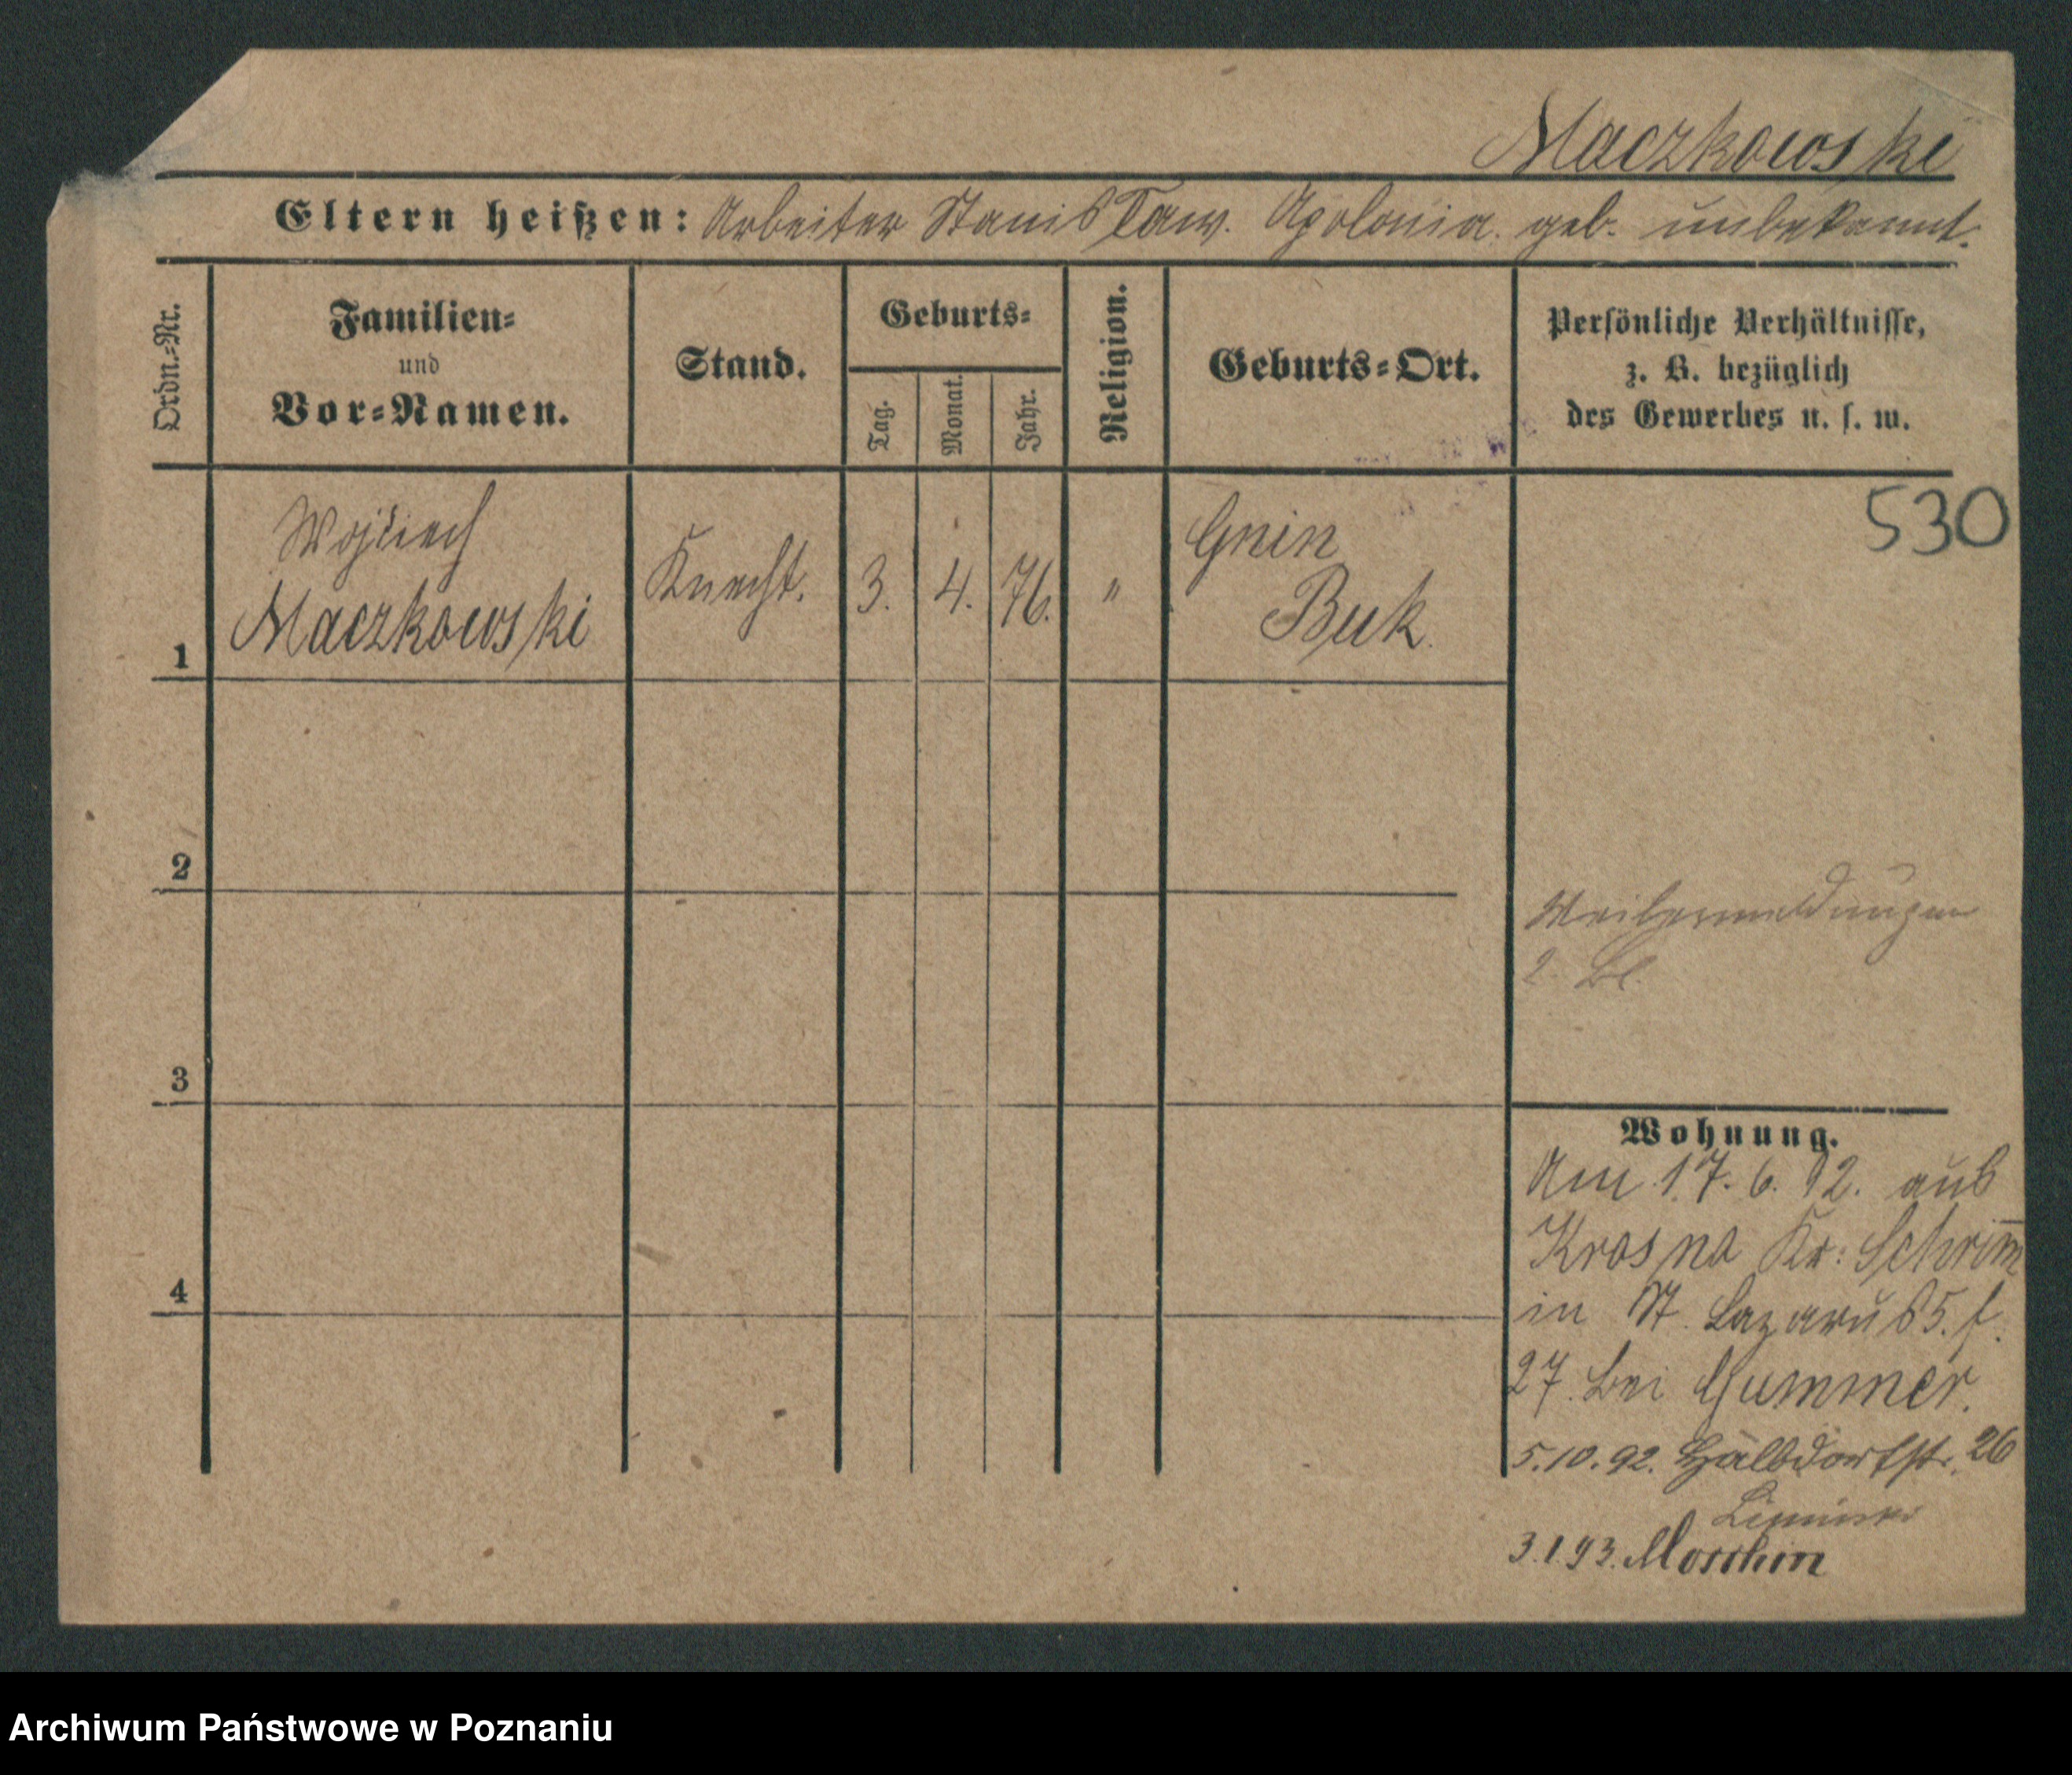 Maczkowski
Eltern heißen: Arbeiter Stanislaw. Apolonia. geb. unbekannt.
Ordn.=Nr.
Familien=
und
Vor=Namen.
Stand.
Geburts=
Tag.
Monat.
Jahr.
Religion.
Geburts=Ort.
Persönliche Verhältnisse,
z. B. bezüglich
des Gewerbes u. s. w.
530
1
Wojciech
Maczkowski
Knecht.
3.
4.
76.
"
Gnin
Buk.
2
3
4
2. Bl.
Wohnung.
Am 17. 6. 92. aus
Krosno Kr: Schrim̅
in St. Lazarus 5. f.
27. bei Gummer.
5.10.92. Halbdorfstr. 26
3.1.93. Moschin
Archiwum Państwowe w Poznaniu